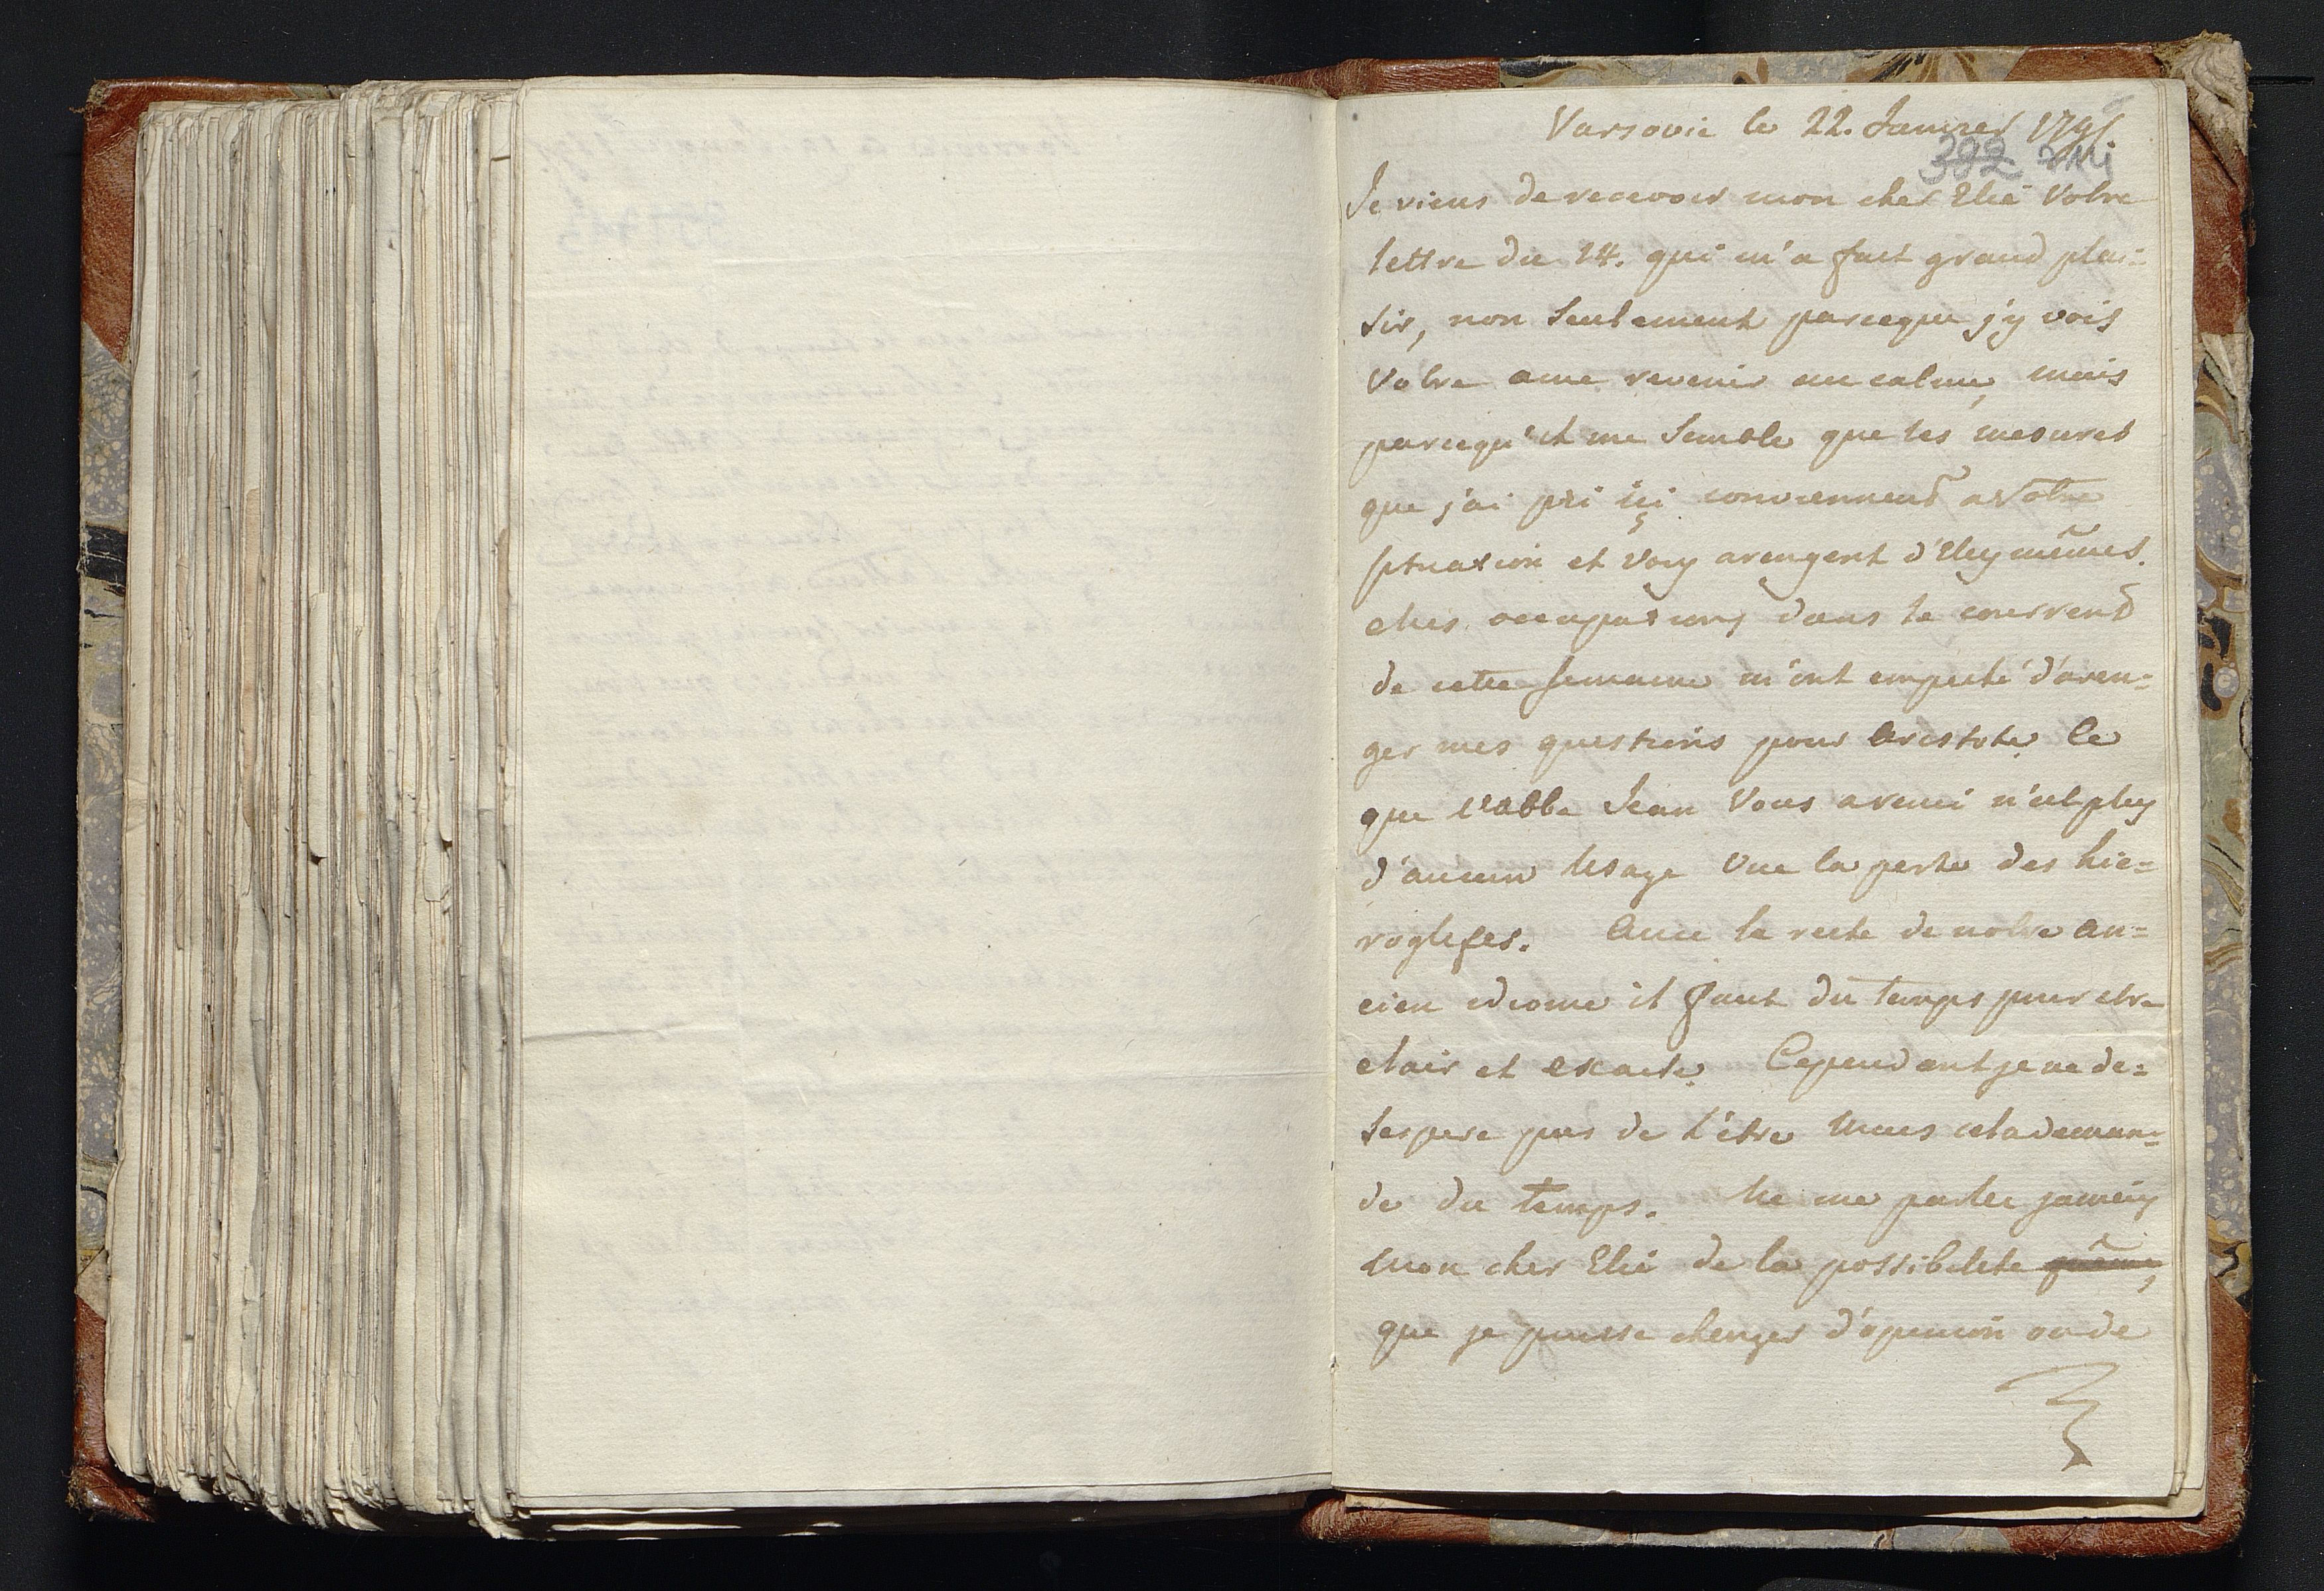 Varsovie le 22. Janvier 179
392
Je viens de recevoir mon cher Elie Votre
lettre du 14. qui m'a fait grand plai=
sir, non seulement parceque j'y vois
Votre ame revenir au calme, mais
parcequ'il me semble que les mesures
que j'ai pri içi conviennent a Votre
situation et Vous arengent d'Elles mêmes.
Mes occupations dans le courrent
de cette semaine m'ont empeché d'aren=
ger mes questions pour Aristote. Ce
que l'abbe Jean Vous a remi n'est plus
d'aucun Usage Vue la perte des hie=
roglifes. Avec le reste de notre an=
cien idiome il faut du temps pour etre
clair et exacte. Cependant je ne de=
sespere pas de l'être Mais cela deman=
de du temps. Ne me parlez jamais
Mon cher Elie de la possibilité
que je puisse changer d'opinion ou de